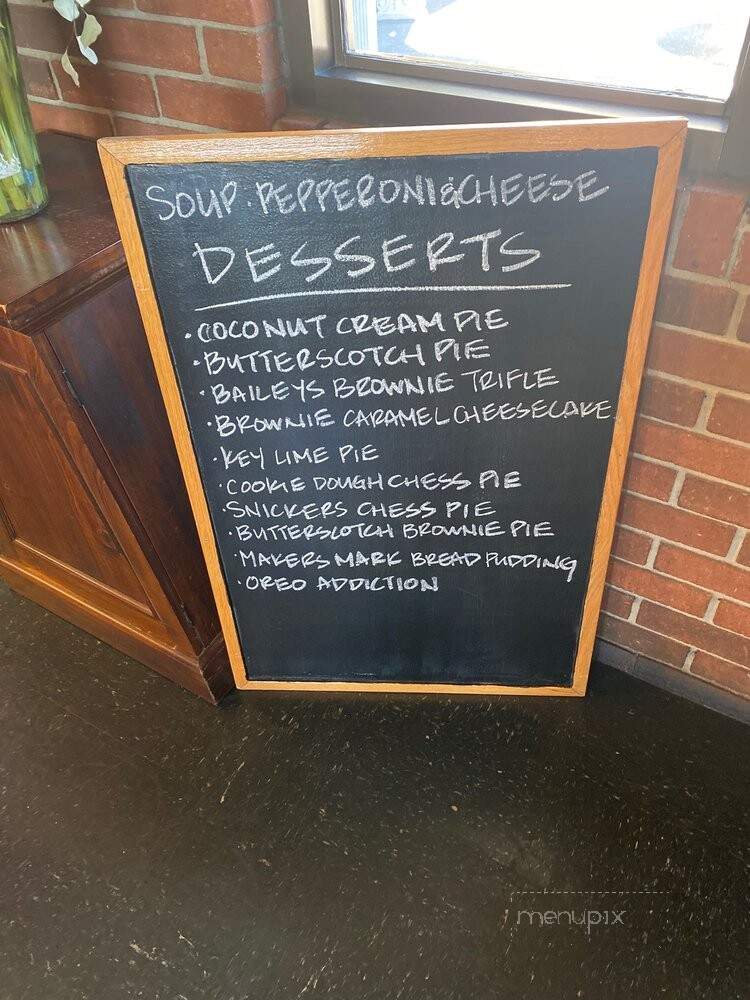 SOUP · PEPPERONI & CHEESE
DESSERTS
· COCONUT CREAM PIE
· BUTTERSCOTCH PIE
· BAILEYS BROWNIE TRIFLE
· BROWNIE CARAMEL CHEESECAKE
· KEY LIME PIE
· COOKIE DOUGH CHESS PIE
· SNICKERS CHESS PIE
· BUTTERSCOTCH BROWNIE PIE
· MAKERS MARK BREAD PUDDING
· OREO ADDICTION
menupix